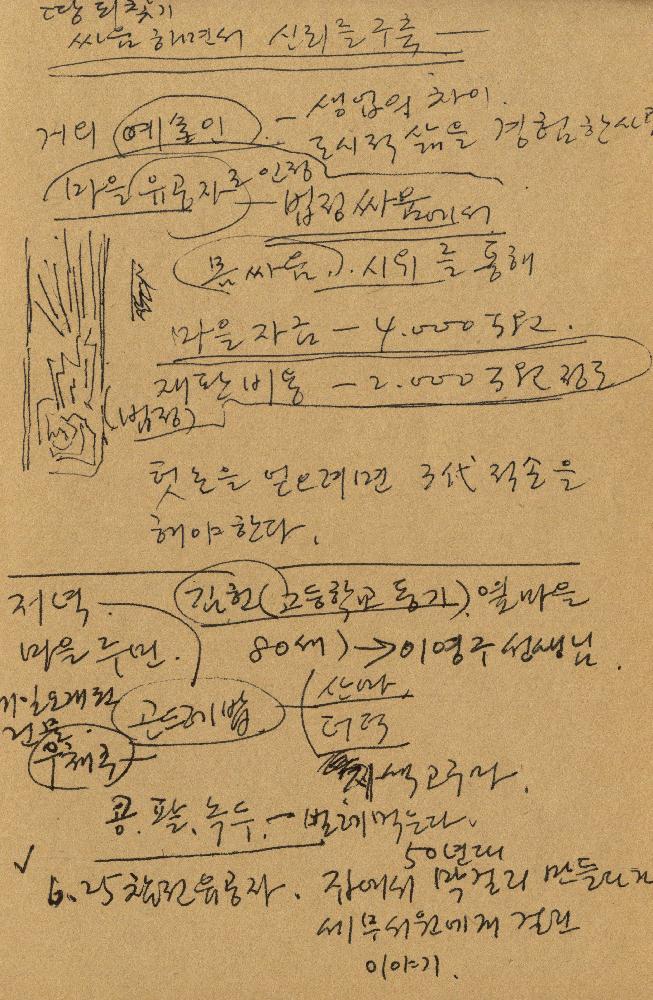 땅 되찾기
싸움 하면서 신뢰를 구축 —
거의 예술인 :— 생업의 차이.
도시적 삶을 경험한 사람
마을 유공자로 인정 — 법정 싸움에서
몸싸움. 시위를 통해
마을 자금 — 4.000주고.
재판비용 — 2.000주고 정도
(법정)
텃논을 얻으려면 3代 적손을
해야 한다.
저녁. 김헌(고등학교 동기). 옆마을
마을 주민. 80세) → 이영주 선생님.
제일 오래된 건물.
우체국 —
곤드레밥
산마
더덕
색 고구마.
콩. 팥. 녹두. — 벌레 먹는다.
✓ 6.25 참전 유공자. 50년대
집에서 막걸리 만들다가
세무서원에게 걸린
이야기.